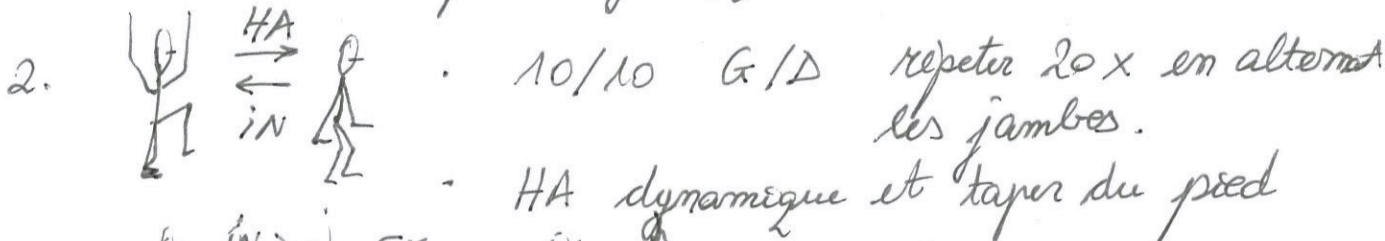 HA
2. · 10/10 G/D répeter 20x en alternat
iN
les jambes.
- HA dynamique et taper du pied